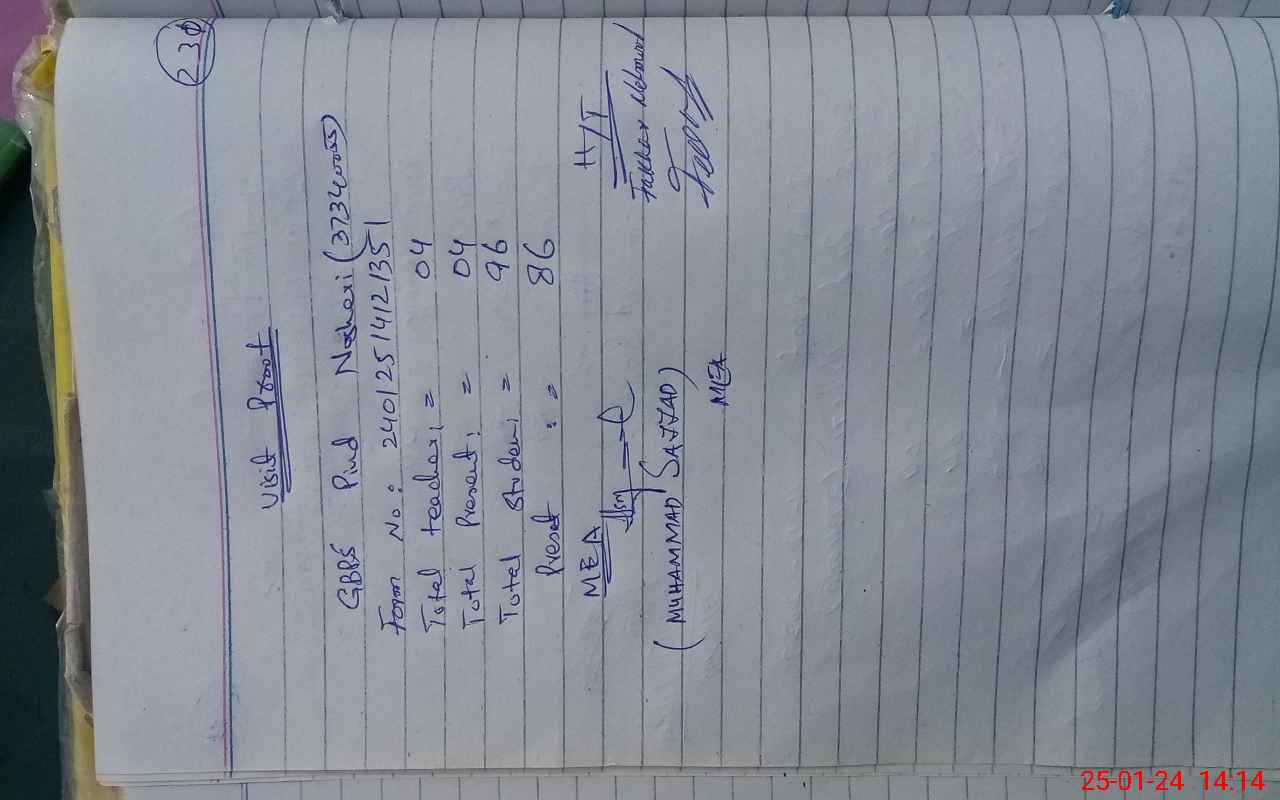 230
Visit Proof
GBPS Pind Nosheri (37340055)
Form No: 24012514121351
Total teachers = 04
Total Present: = 04
Total Student = 96
Present " = 86
MEA
H/T
Fakhar Mehmood
(MUHAMMAD SAJJAD)
MEA
25-01-24 14:14